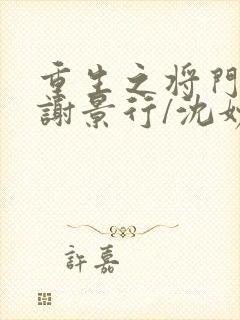 重生之将門
謝景行/沈妙
許嘉